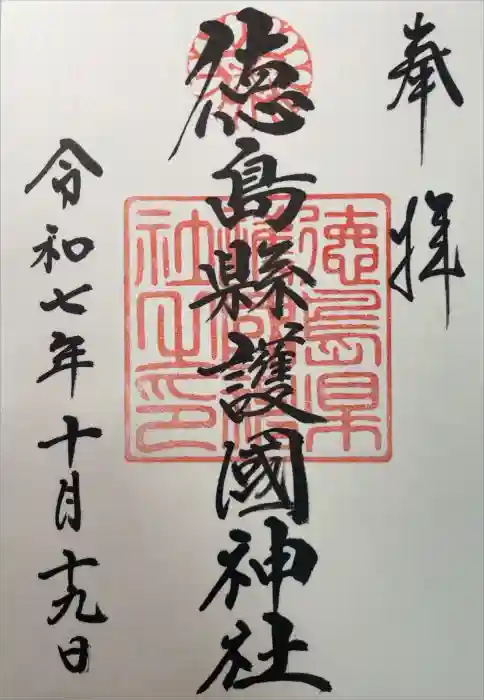 奉拝
徳島縣護國神社
令和七年十月十九日
徳島県
社之印